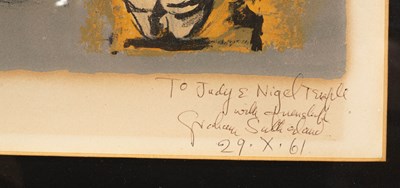 To Judy & Nigel Temple
with friendship
Graham Sutherland
29.X.61